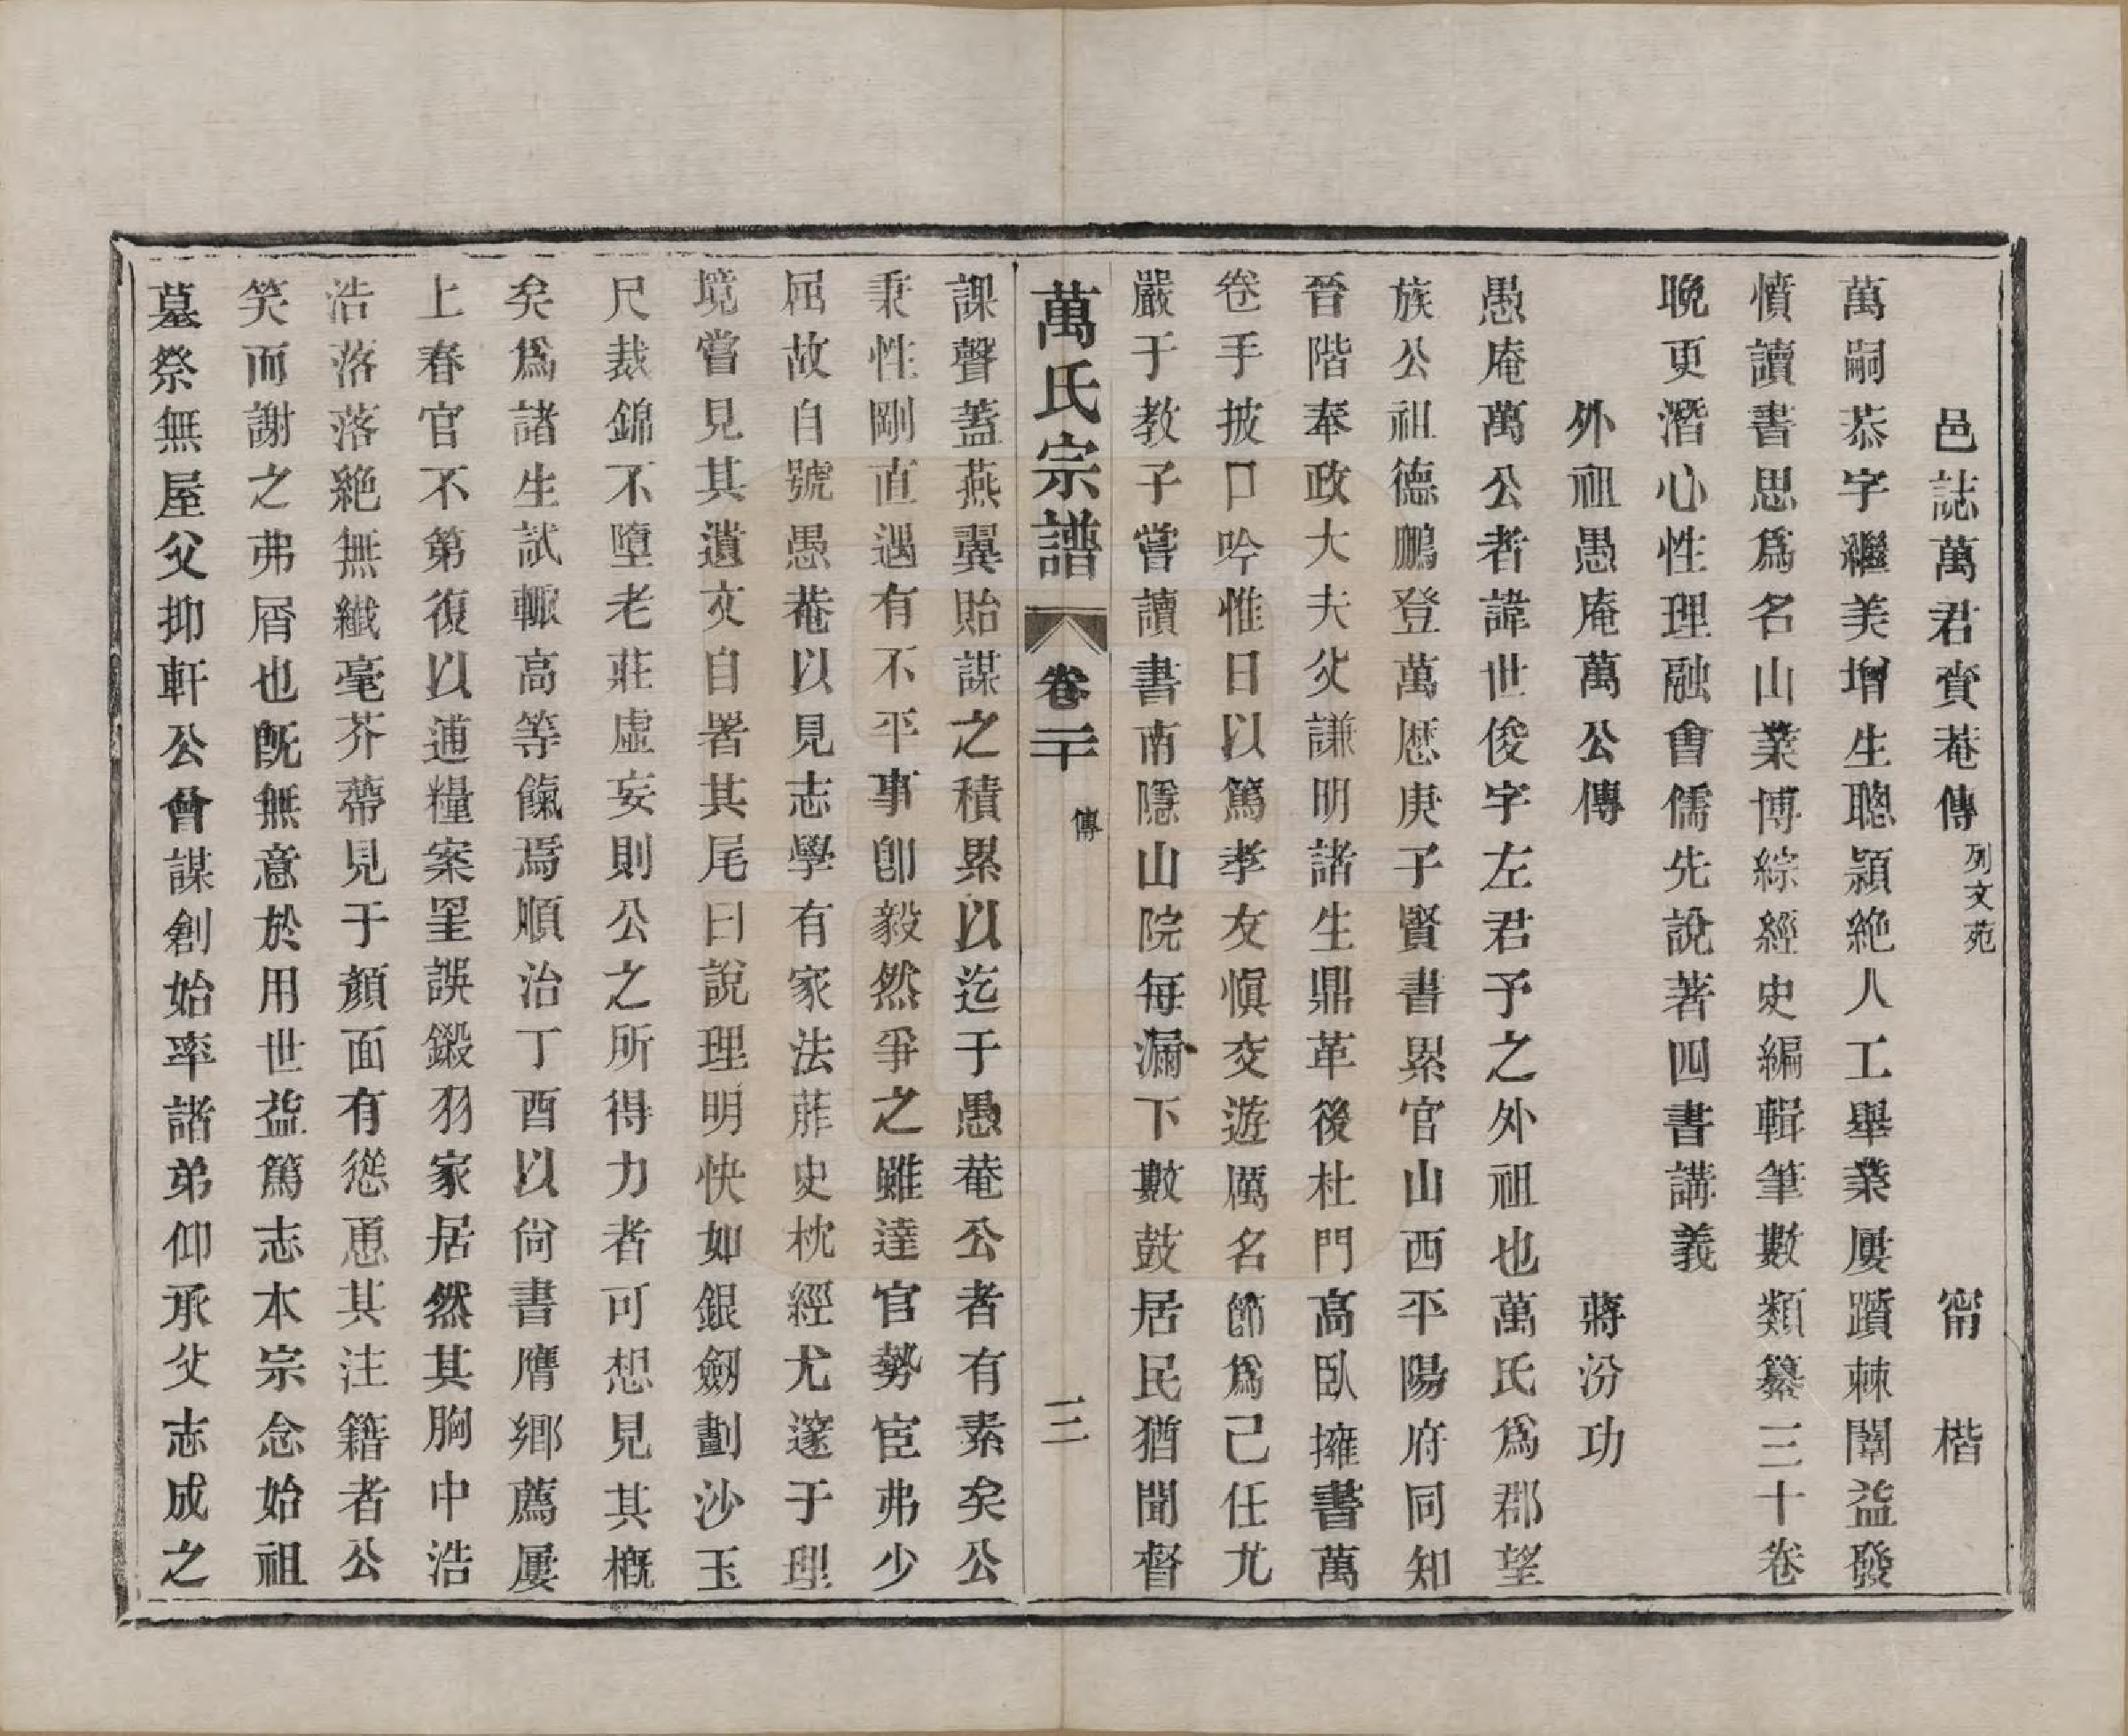 邑誌萬君賓菴傳 列文苑 甯楷
萬嗣恭字繼美增生聰潁絶人工舉業屢躓棘闈益發
憤讀書思爲名山業博綜經史編輯筆數類纂三十卷
晩更潛心性理融會儒先說著四書講義
外祖愚庵萬公傳 蔣汾功
愚庵萬公者諱世俊字左君予之外祖也萬氏爲郡望
族公祖德鵬登萬厯庚子賢書累官山西平陽府同知
晉階奉政大夫父謙明諸生鼎革後杜門高臥擁書萬
卷手披口吟惟日以篤孝友愼交遊厲名節爲己任尤
嚴于教子嘗讀書南隱山院每漏下數鼓居民猶聞督
萬氏宗譜 卷二十 傳 三
課聲蓋燕翼貽謀之積累以迄于愚菴公者有素矣公
秉性剛直遇有不平事卽毅然爭之雖達官勢宦弗少
屈故自號愚菴以見志學有家法葄史枕經尤邃于理
境嘗見其遺文自署其尾曰說理明快如銀劒劃沙玉
尺裁錦不墮老莊虛妄則公之所得力者可想見其概
矣爲諸生試輒高等餼焉順治丁酉以尙書膺鄉薦屢
上春官不第復以逋糧案罣誤鎩羽家居然其胸中浩
浩落落絶無纖毫芥蔕見于顏面有慫恿其注籍者公
笑而謝之弗屑也旣無意於用世益篤志本宗念始祖
墓祭無屋父抑軒公曾謀創始率諸弟仰承父志成之